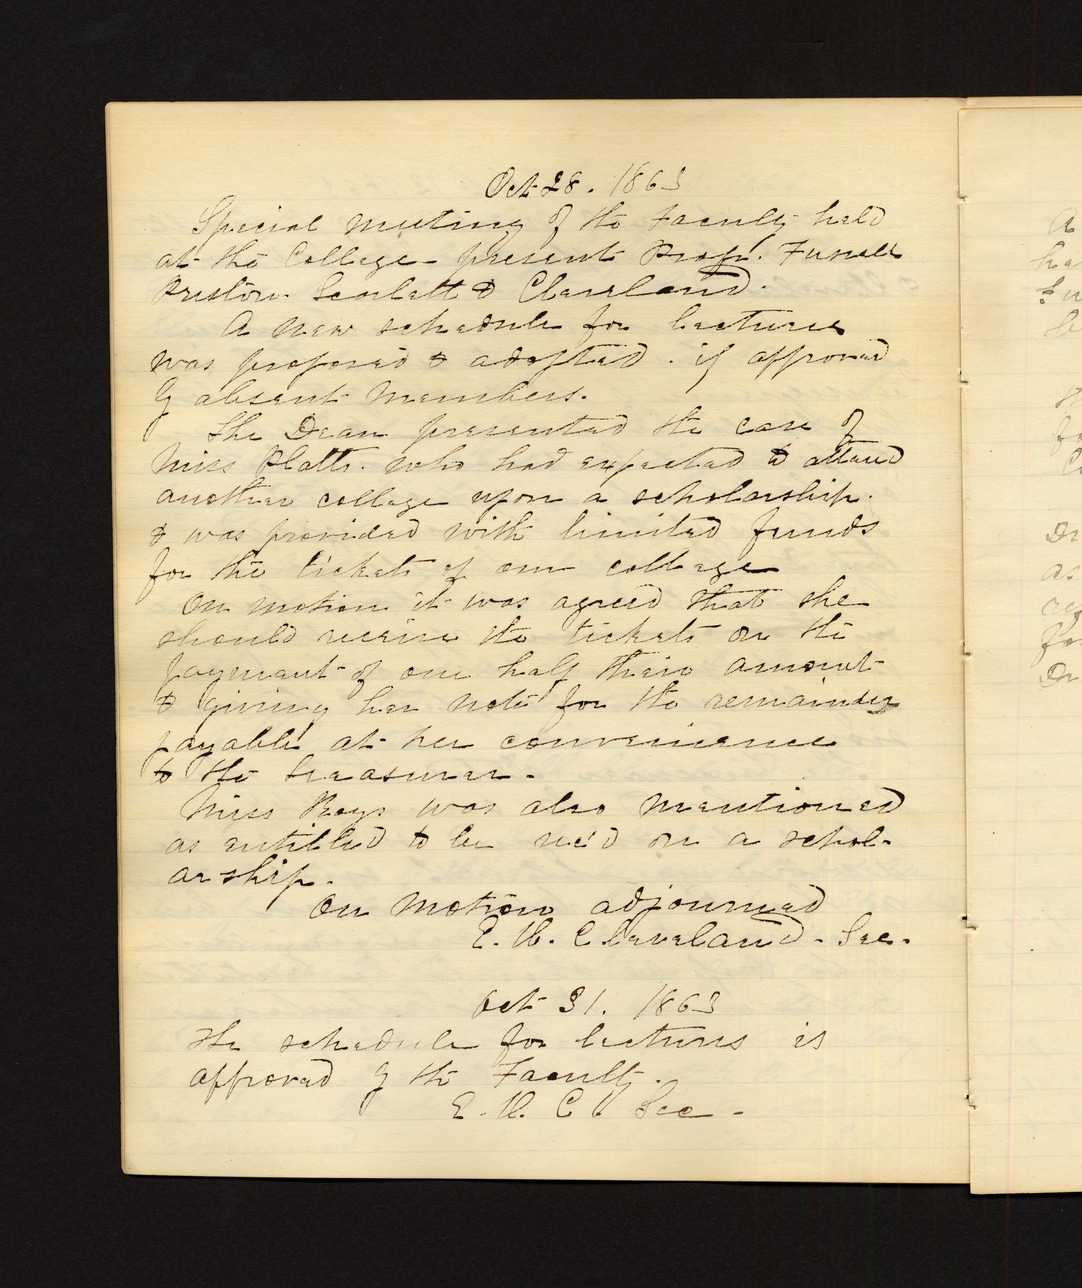 Oct 28. 1863
Special meeting of the Faculty held
at the College present Profs. Fussell
Preston Scarlett & Cleveland.
A new schedule for lectures
was proposed & adopted. if approved
by absent members.
The Dean presented the case of
Miss Platts. who had expected to attend
another college upon a scholarship.
& was provided with limited funds
for the tickets of our college
On motion it was agreed that she
should receive the tickets on the
payment of one half their amount
& giving her note for the remainder
payable at her convenience
to the treasurer.
Miss Bays was also mentioned
as entitled to be rec'd on a schol-
arship.
On motion adjourned
E. H. Cleveland. Sec.
Oct 31. 1863
The schedule for lectures is
approved by the Faculty.
E. H. C Sec -